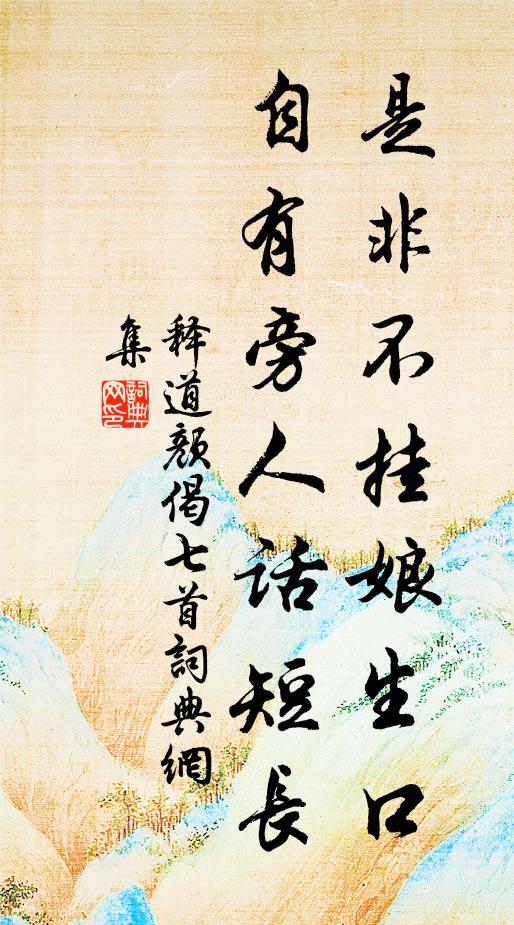 是非不挂娘生口
自有旁人话短長
释道颜偈七首詞典網
集
詞典
网印